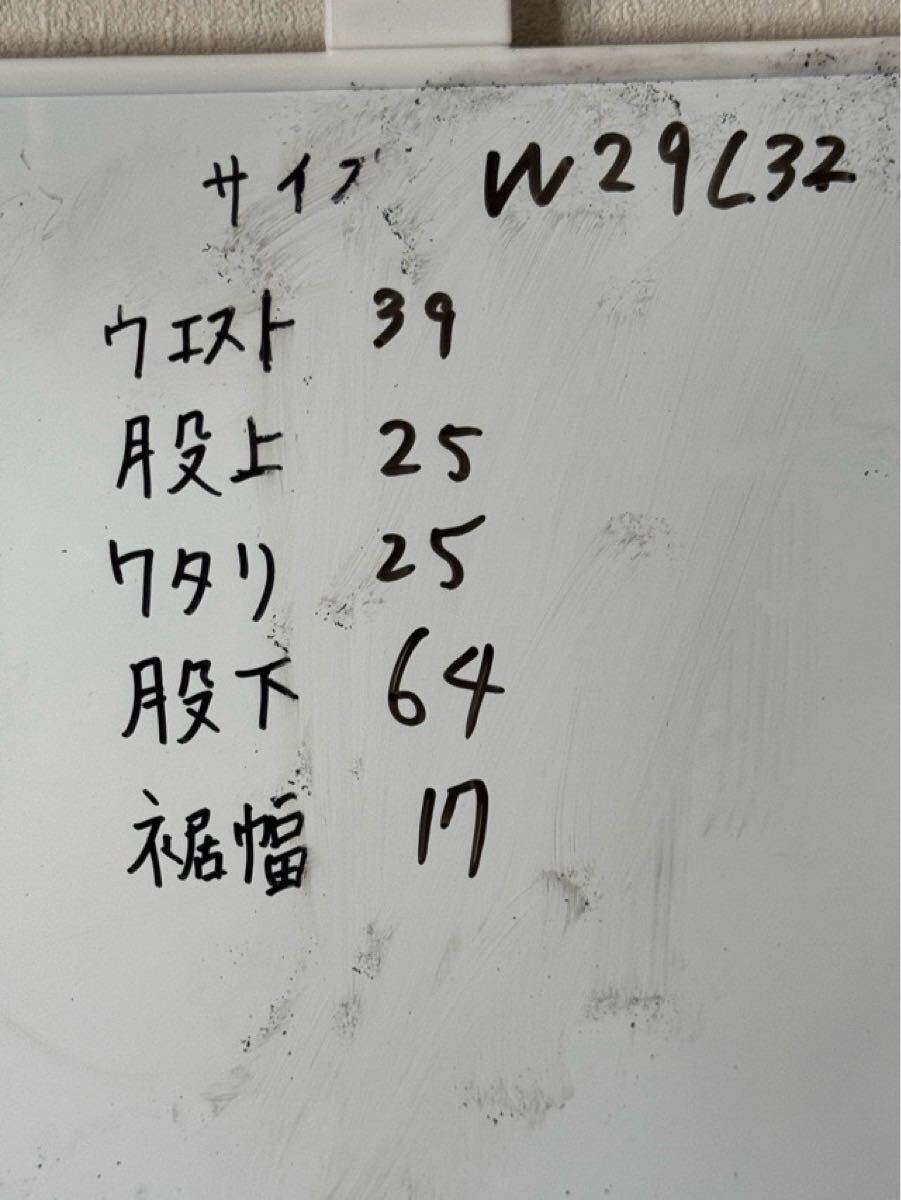 サイズ W29L32
ウエスト 39
股上 25
ワタリ 25
股下 64
裾幅 17